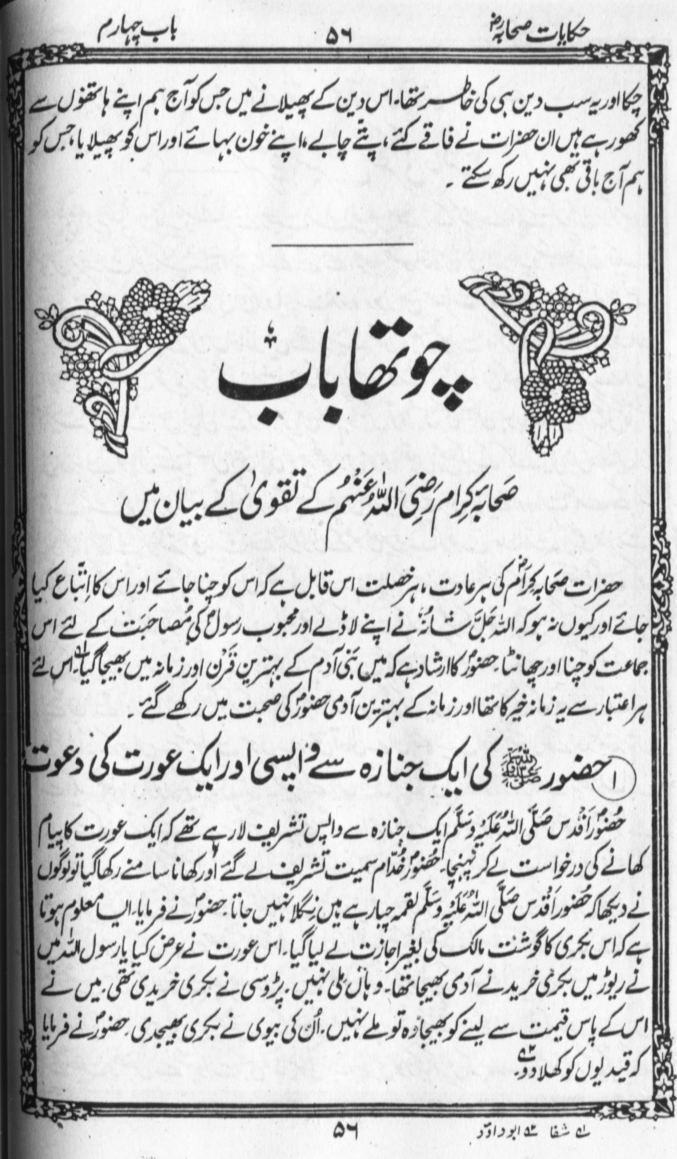 حکایات صحابہؓ ۵۶ باب چہارم
چکا اور یہ سب دین ہی کی خاطر تھا۔ اس دین کے پھیلانے میں جس کو آج ہم اپنے ہاتھوں سے
کھو رہے ہیں ان حضرات نے فاقے کئے، پتّے چابے، اپنے خون بہائے اور اس کو پھیلایا، جس کو
ہم آج باقی بھی نہیں رکھ سکتے۔
چوتھا باب
صحابۂ کرام رَضِیَ اللہُ عَنْہُم کے تقویٰ کے بیان میں
حضرات صحابہ کرامؓ کی ہر عادت، ہر خصلت اس قابل ہے کہ اس کو چنا جائے اور اس کا اِتّباع کیا
جائے اور کیوں نہ ہو کہ اللہ جَلَّ شَانُہٗ نے اپنے لاڈلے اور محبوب رسولؐ کی مُصاحَبَت کے لئے اس
جماعت کو چنا اور چھانٹا۔ حضورؐ کا ارشاد ہے کہ میں بَنی آدم کے بہترین قَرْن اور زمانہ میں بھیجا گیا۱؎ اس لئے
ہر اعتبار سے یہ زمانہ خیر کا تھا اور زمانہ کے بہترین آدمی حضورؐ کی صحبت میں رکھے گئے۔
۱ حضور ﷺ کی ایک جنازہ سے واپسی اور ایک عورت کی دعوت
حُضورِ اَقْدس صَلَّی اللہُ عَلَیْہِ وَسَلَّم ایک جنازہ سے واپس تشریف لا رہے تھے کہ ایک عورت کا پیام
کھانے کی درخواست لے کر پہنچا۔ حضورؐ خُدّام سمیت تشریف لے گئے اور کھانا سامنے رکھا گیا تو لوگوں
نے دیکھا کہ حضور اَقْدس صَلَّی اللہُ عَلَیْہِ وَسَلَّم لقمہ چبا رہے ہیں نِگلا نہیں جاتا۔ حضورؐ نے فرمایا۔ ایسا معلوم ہوتا
ہے کہ اس بکری کا گوشت مالک کی بغیر اجازت لے لیا گیا۔ اس عورت نے عرض کیا یا رسول اللہ میں
نے ریوڑ میں بکری خریدنے آدمی بھیجا تھا۔ وہاں ملی نہیں۔ پڑوسی نے بکری خریدی تھی۔ میں نے
اس کے پاس قیمت سے لینے کو بھیجا وہ تو ملے نہیں۔ اُن کی بیوی نے بکری بھیجدی۔ حضورؐ نے فرمایا
کہ قیدیوں کو کھلا دو۲؎
۵۶ ۱؎ شفا ۲؎ ابوداؤد